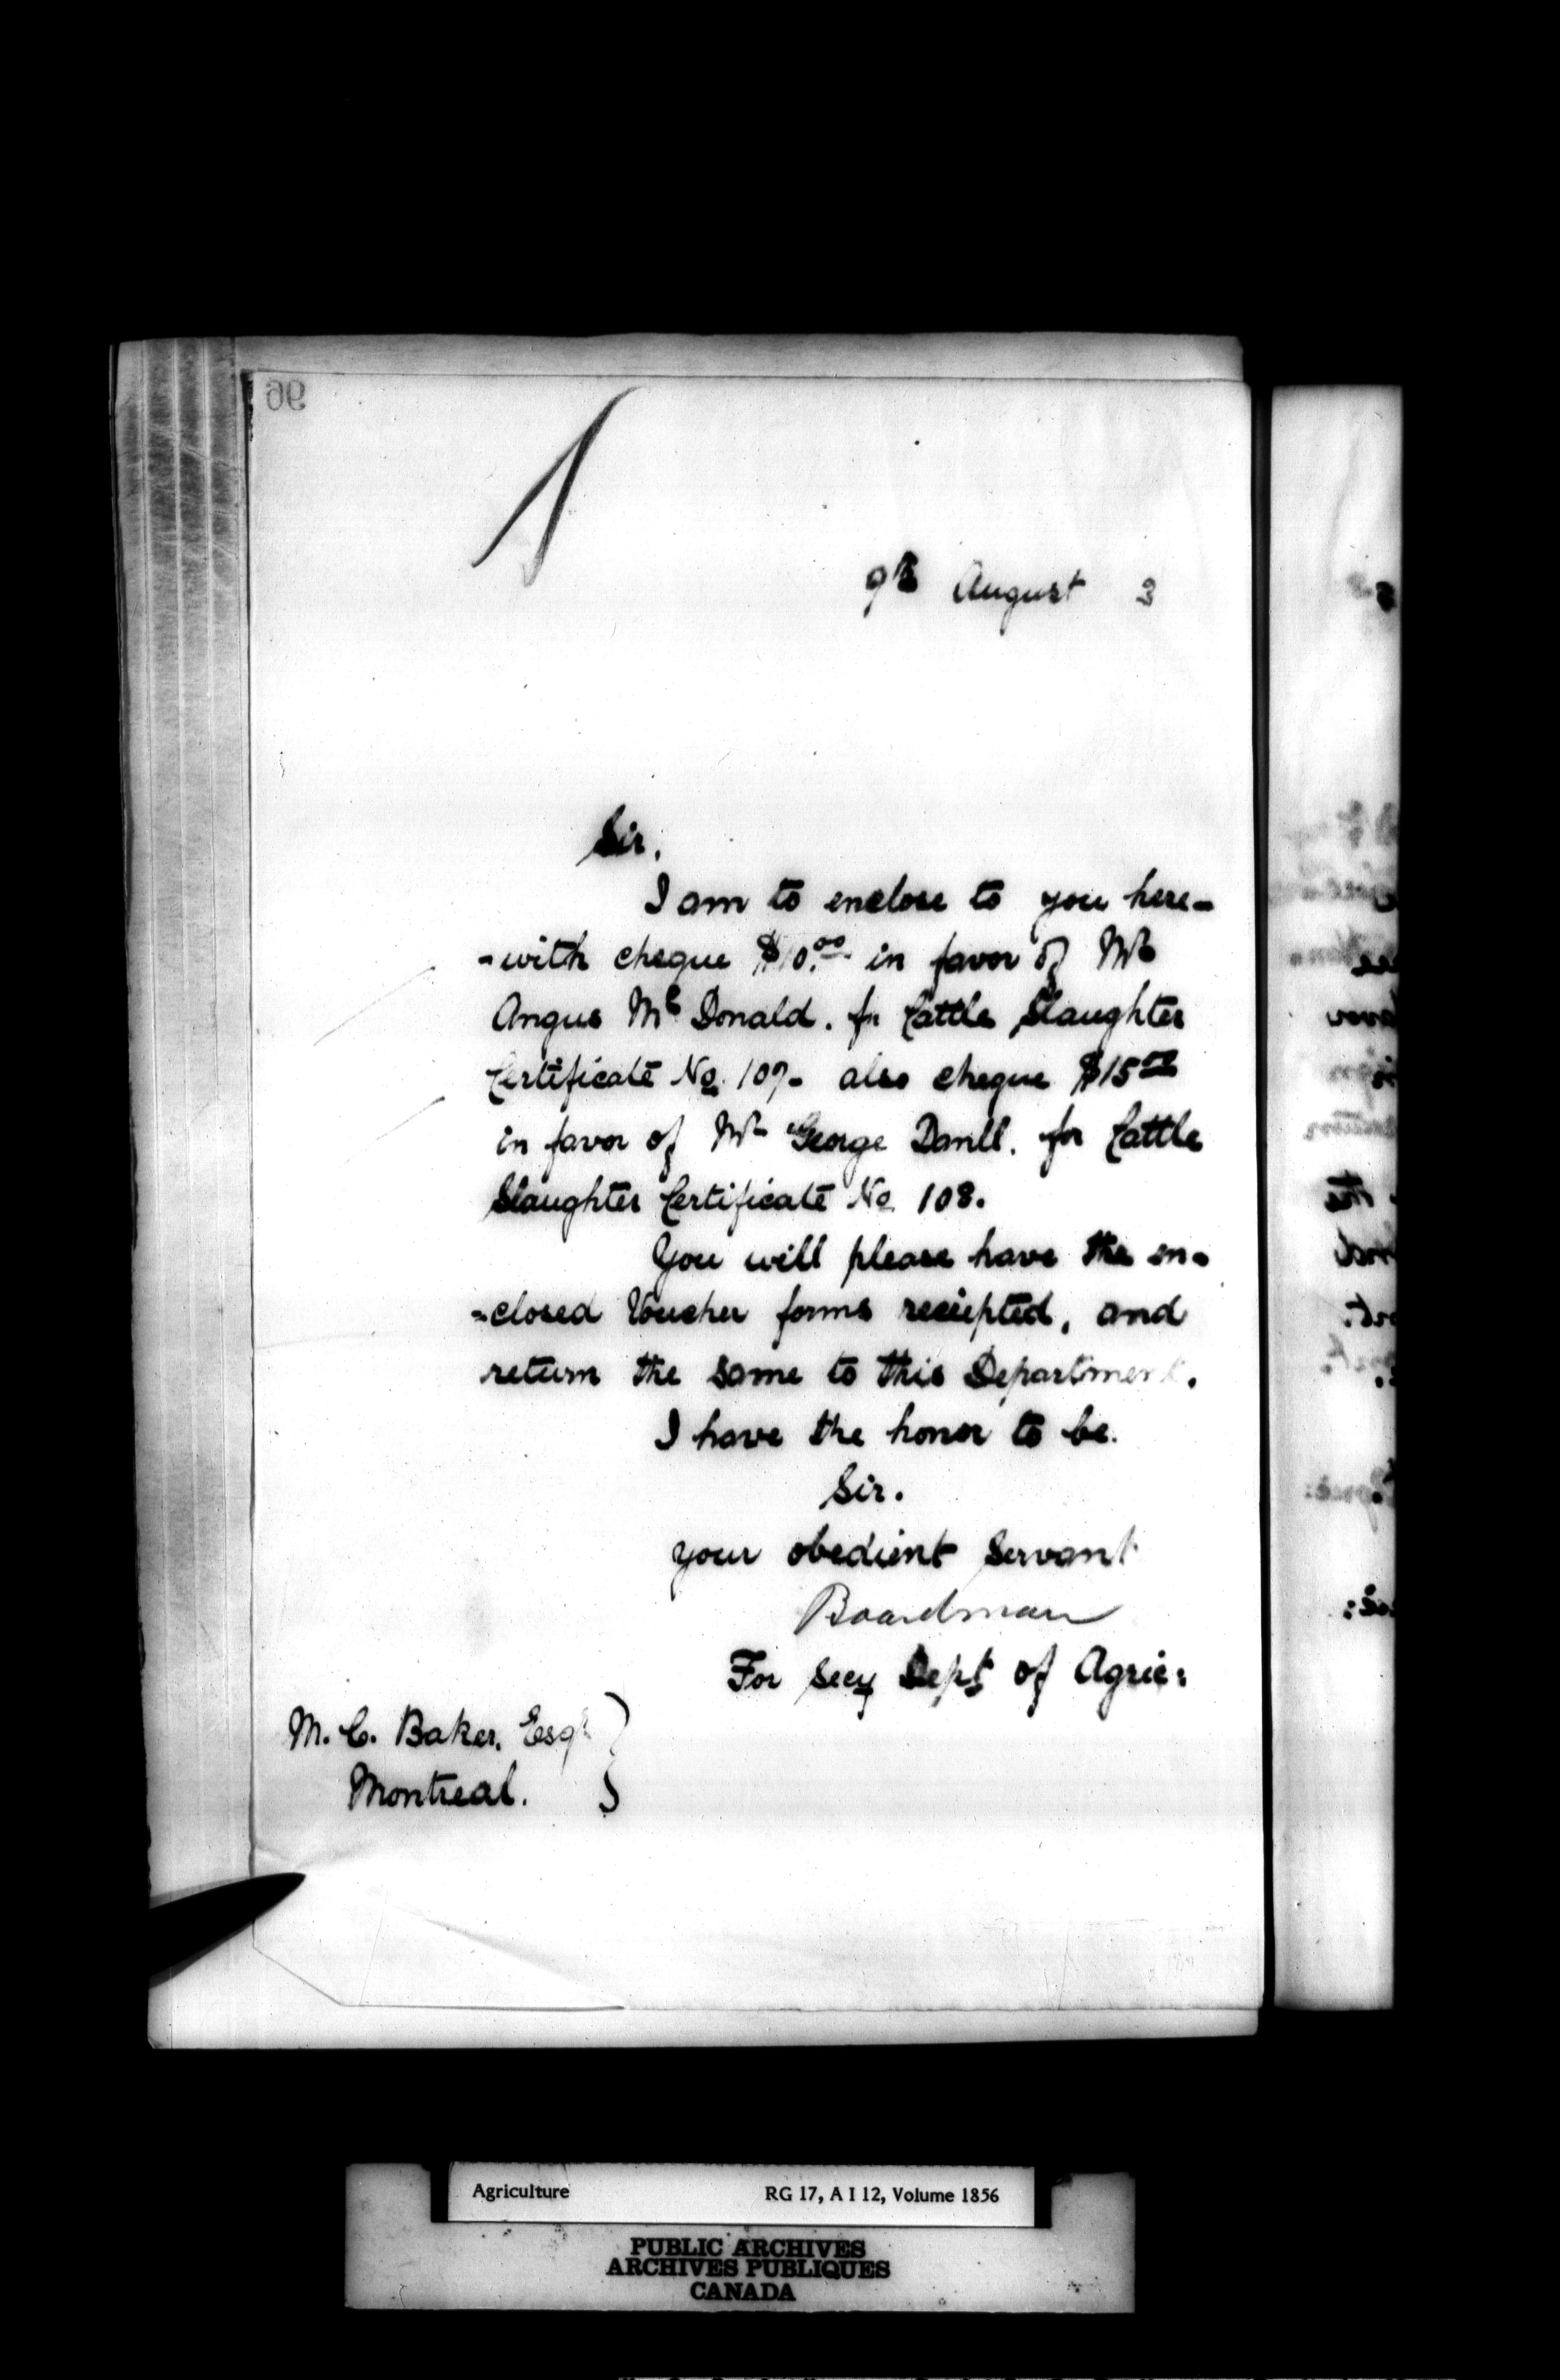 96
9th August 3
Sir.
I am to enclose to you here-
-with cheque $10.00 in favor of Mr
Angus Mc Donald. for Cattle Slaughter
Certificate No. 107- also cheque $15.00
in favor of Mr George for Cattle
Slaughter Certificate No 108.
You will please have the en-
-closed Voucher forms reciepted, and
return the same to this Department.
I have the honor to be.
Sir.
your obedient Servant
Boardman
For Secy Dept of Agric:
M. C. Baker. Esqr
Montreal.
Agriculture RG 17, A I 12, Volume 1856
PUBLIC ARCHIVES
ARCHIVES PUBLIQUES
CANADA